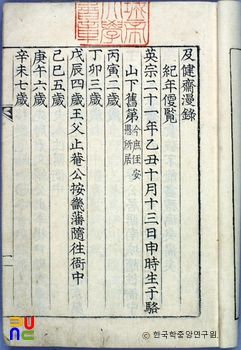 及健齋漫錄
紀年便覽
英宗二十一年乙丑十月十三日申時生于駱
山下舊第
今庶侄安
愚所居
丙寅二歲
丁卯三歲
戊辰四歲王父止菴公按
藩隨往衙中
己巳五歲
庚午六歲
辛未七歲
ⓒ한국학중앙연구원